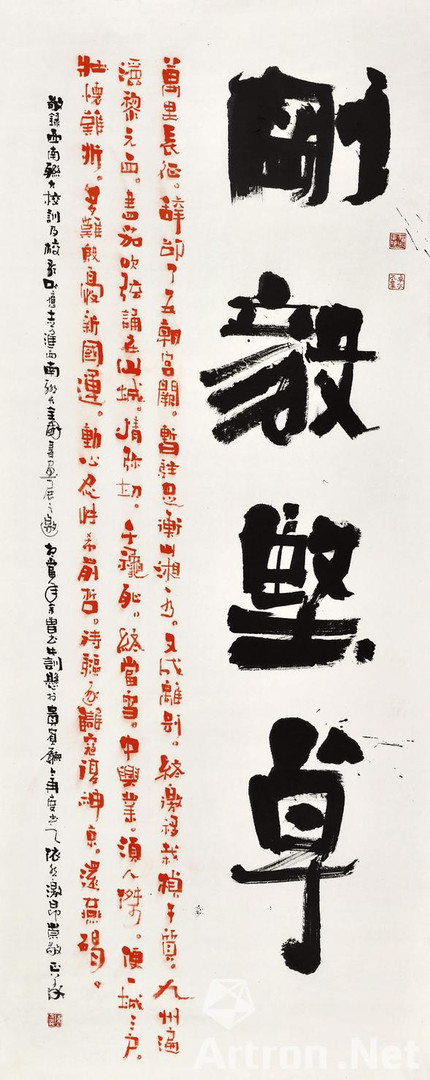 剛毅堅卓
萬里長征。辭卻了五朝宮闕。暫駐足衡山湘水。又成離別。絕徼移栽楨榦質。九州遍
灑黎元血。盡笳吹弦誦在山城。情彌切。千穐恥。終當雪。中興業。須人傑。便一城三戶。
壯懷難折。多難殷憂新國運。動心忍性希前哲。待驅逐讎寇復神京。還燕碣。
敬錄西南聯大校訓及校歌以應 西南聯大主題書畫展之邀
Artron.Net